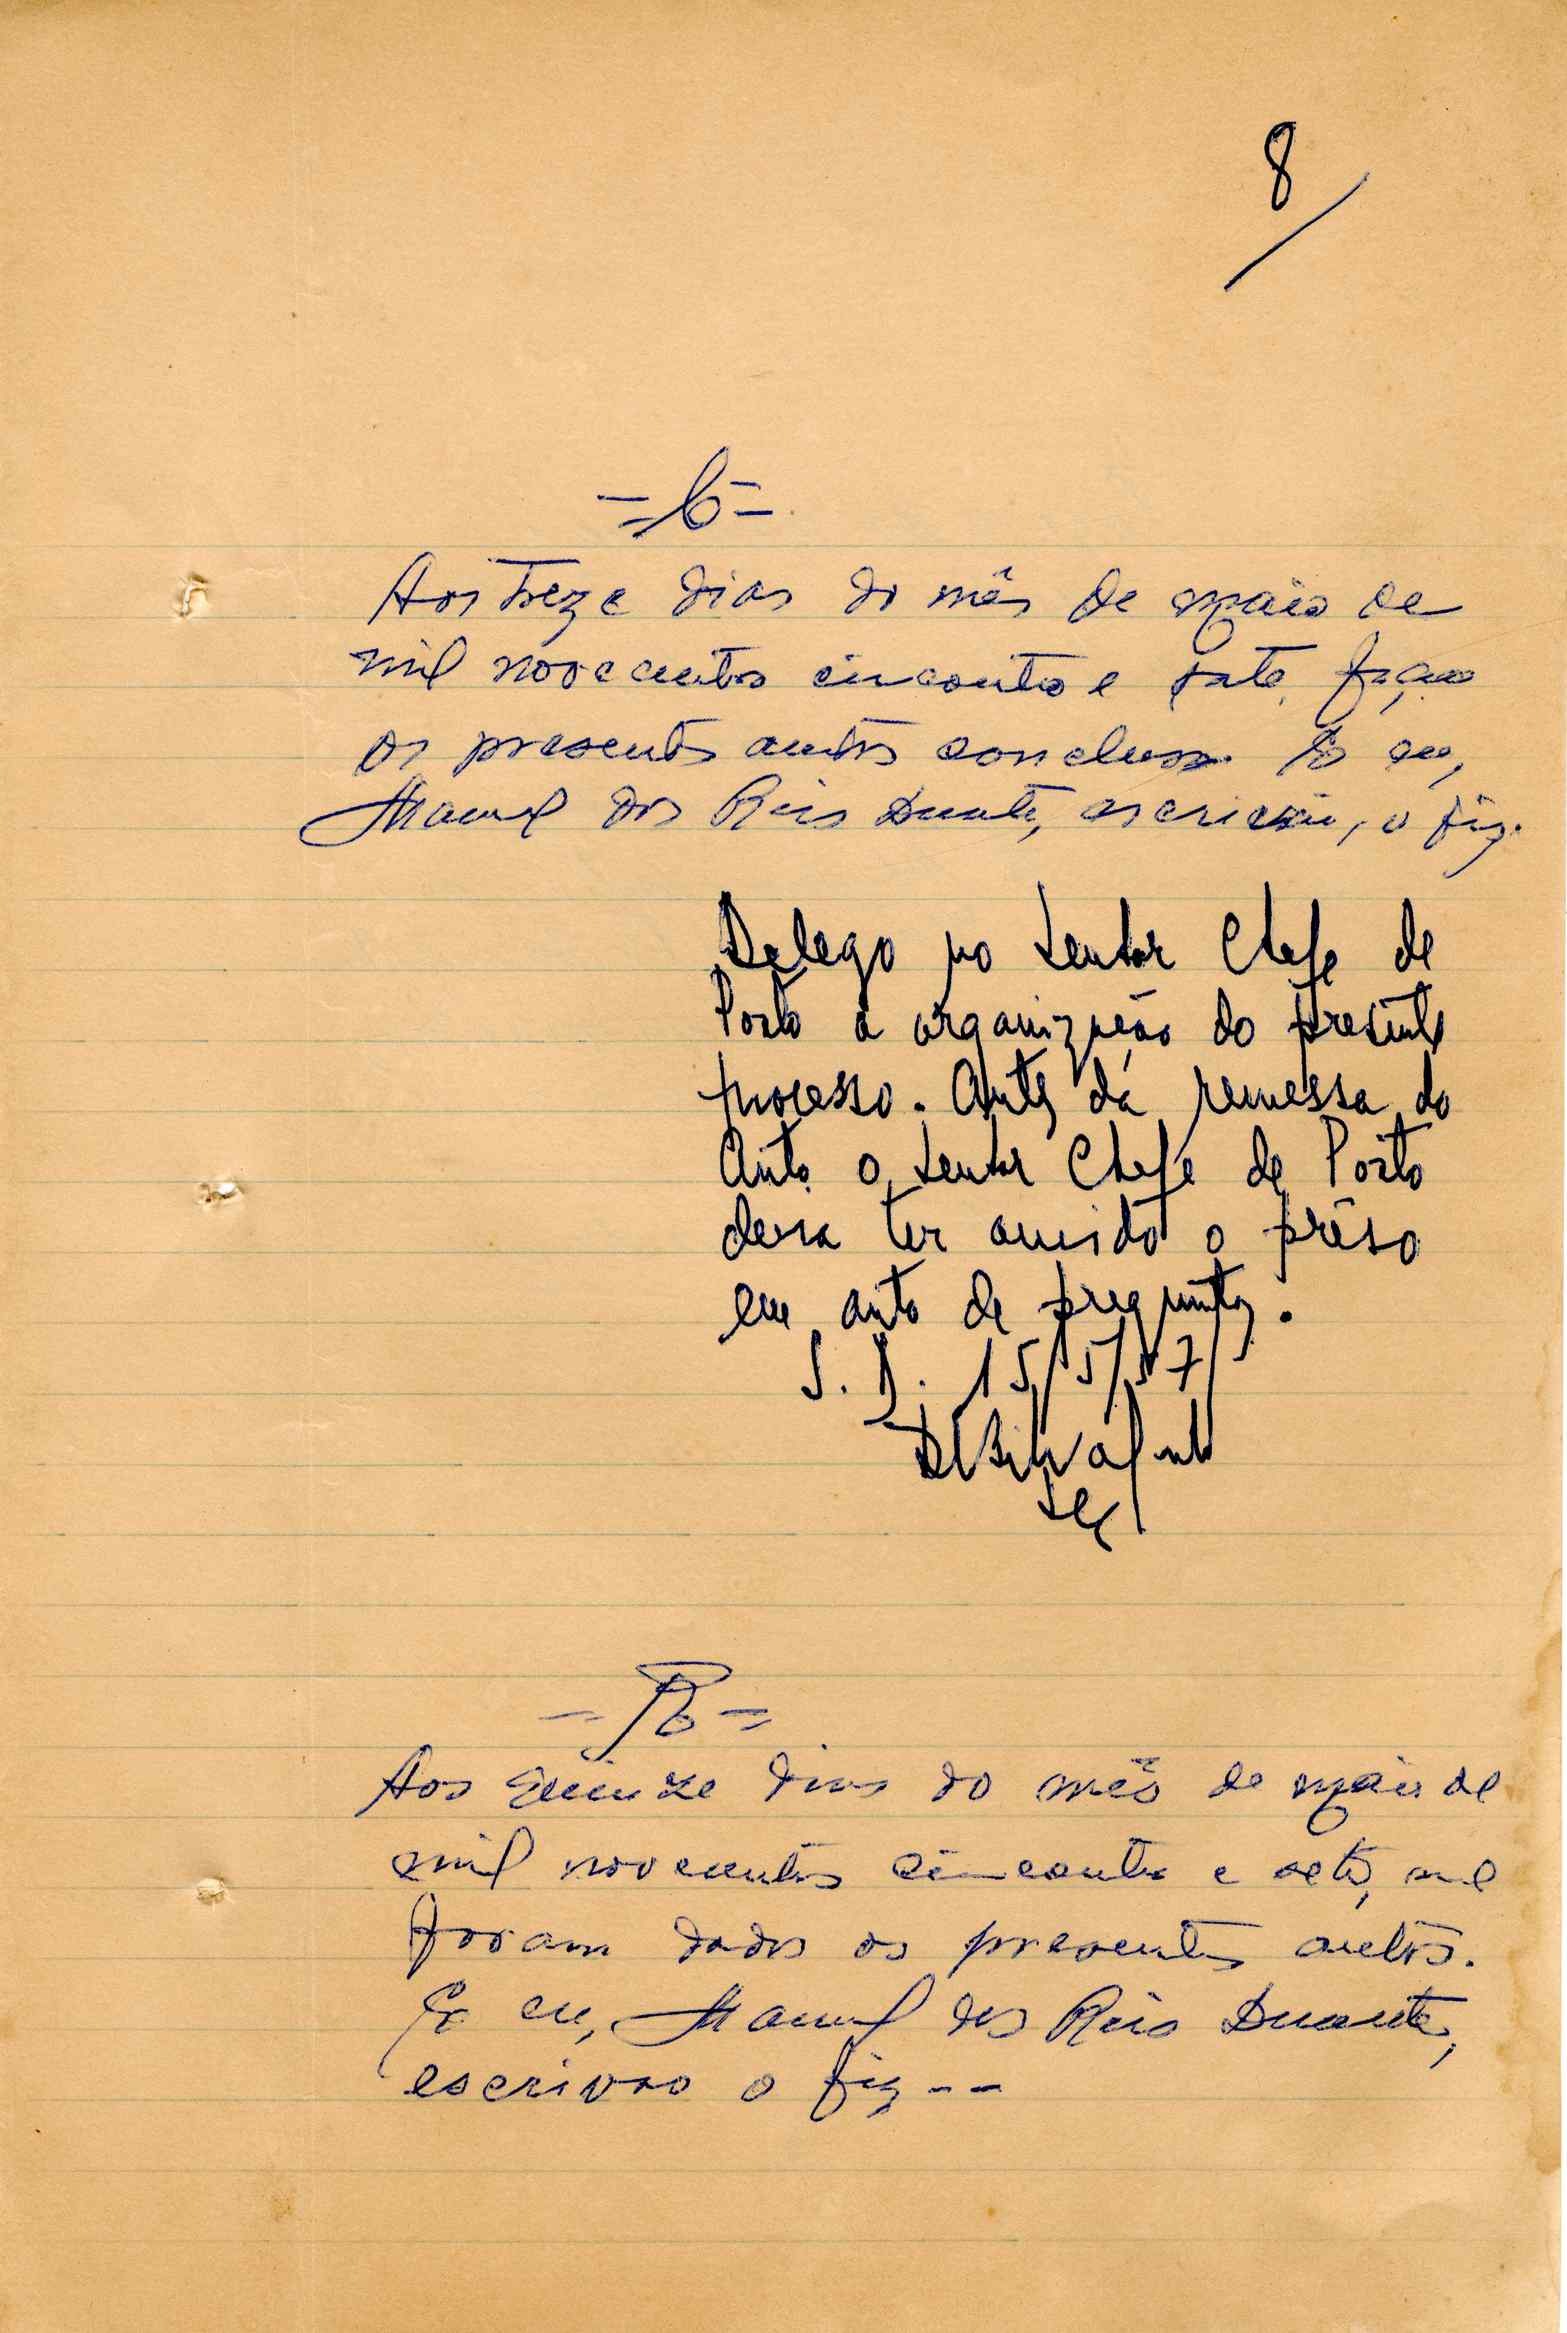 8
Aos treze dias do mês de maio de
mil novecentos cincoenta e sete, faço
os presentes autos conclusos. E eu,
Manuel dos Reis Duarte, escrivão, o fiz.
Delego no Senhor Chefe de
Posto a organização do presente
processo. Antes da remessa do
Auto o Senhor Chefe de Posto
deva ter ouvido o prêso
em auto de preguntas.
S. D. 15/5/57
Aos quinze dias do mês de maio de
mil novecentos cincoenta e sete, me
foram dados os presentes autos.
E eu, Manuel dos Reis Duarte,
escrivão o fiz--